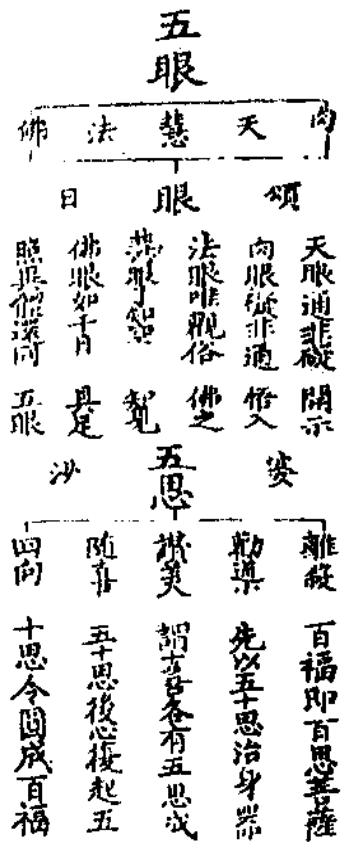 五眼
肉 天 慧 法 佛
眼
頌曰
天眼通非礙
肉眼礙非通
法眼唯觀俗
慧眼
佛眼如千日
照異體還同
開示
悟入
佛之
知見
具足
五眼
五思
離殺
勸導
讚美
隨喜
四向
百福即百思菩薩
先以五十思治身器
謂十善各有五思成
五十思後心接起五
十思令圓成百福